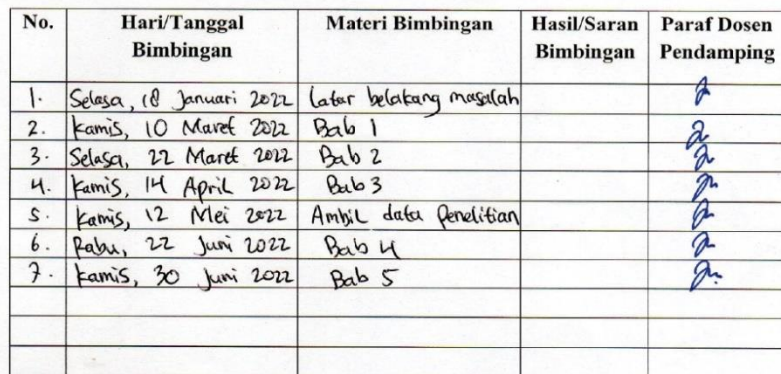 No. Hari/Tanggal Bimbingan Materi Bimbingan Hasil/Saran Bimbingan Paraf Dosen Pendamping
1. Selasa, 18 Januari 2022 Latar belakang masalah
2. Kamis, 10 Maret 2022 Bab 1
3. Selasa, 22 Maret 2022 Bab 2
4. Kamis, 14 April 2022 Bab 3
5. Kamis, 12 Mei 2022 Ambil data Penelitian
6. Rabu, 22 Juni 2022 Bab 4
7. Kamis, 30 Juni 2022 Bab 5